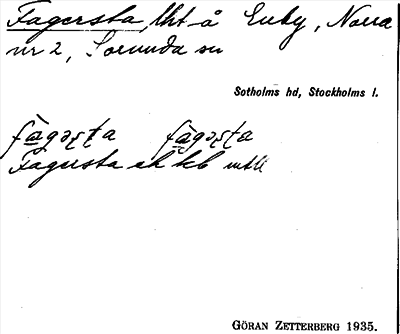 Fagersta, lht å Enby, Norra
nr 2, Sorunda sn
Sotholms hd, Stockholms l.
fàgəʂʈa fàgəʂʈa
Fagersta ek kb
GÖRAN ZETTERBERG 1935.